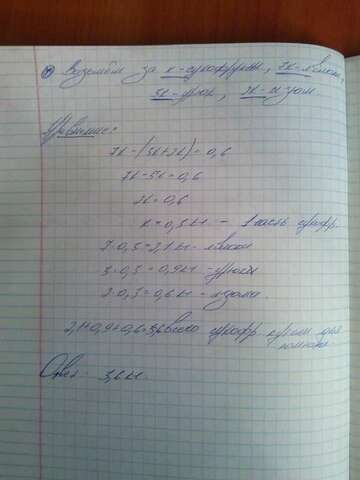 Возьмём за к-сухофрукты, 7к-яблоки,
3к-урюк, 2к-изюм
Уравнение:
7к-(3к+2к)=0,6
7к-5к=0,6
2к=0,6
к=0,3кг - 1 часть сухофр.
7·0,3=2,1кг-яблоки
3·0,3=0,9кг-урюки
2·0,3=0,6кг-изюма.
2,1+0,9+0,6=3,6 всего сухофр. купили для
компота
Ответ: 3,6кг.